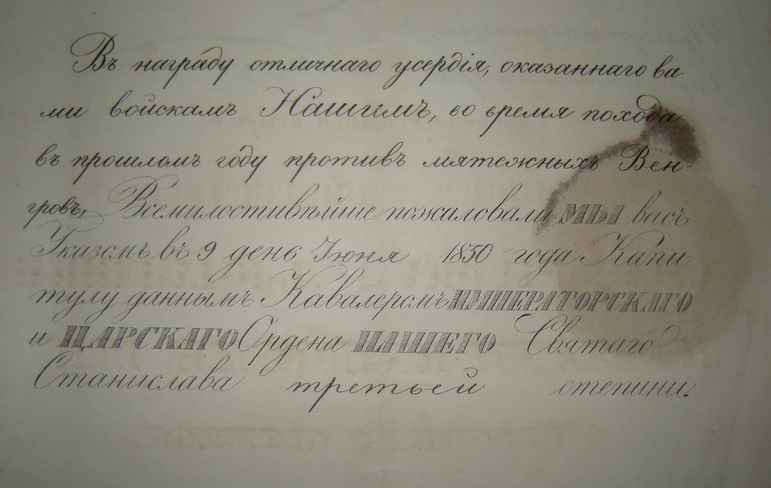 Въ награду отличнаго усердія, оказаннаго ва-
ми войскамъ Нашимъ, во время похода
въ прошломъ году противъ мятежныхъ Вен-
гровъ, Всемилостивѣйше пожаловали МЫ васъ
Указомъ въ 9 день Іюня 1850 года Капи
тулу даннымъ Кавалеромъ ИМПЕРАТОРСКАГО
и ЦАРСКАГО Ордена НАШЕГО Святаго
Станислава третьей степини.